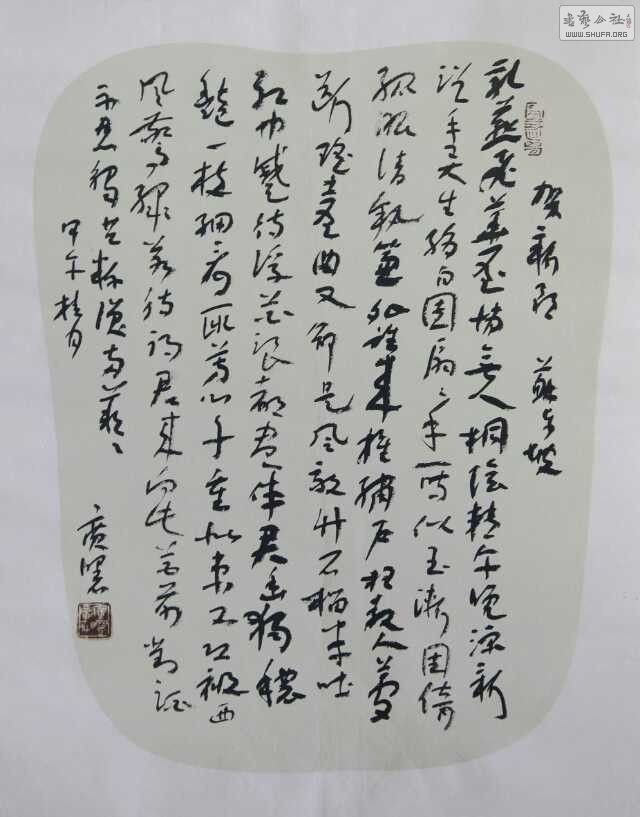 書藝公社
WWW.SHUFA.ORG
贺新郎 苏东坡
乳燕飞華屋悄無人桐陰转午晚凉新
浴手弄生绡白团扇〻手一时似玉渐困倚
孤眠清熟簾外谁来推绣户枉教人梦
断瑶臺曲又却是风敲竹石榴半吐
红巾蹙待浮花浪蕊都尽伴君幽独秾
艳一枝细看取芳心千重似束又恐被西
风惊绿若待得君来向此花前对酒
不忍触共粉泪两簌〻
甲午桂月